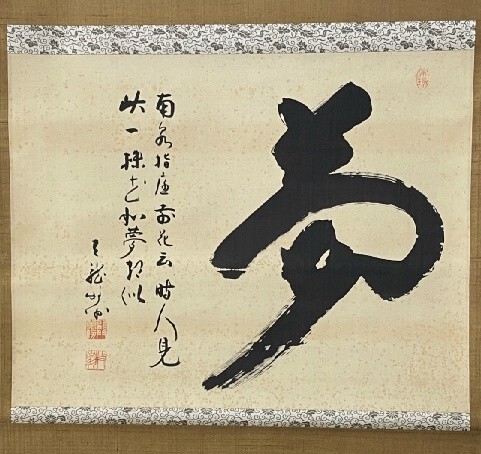 夢
南泉指庭前花云時人見
此一株花如夢相似
天龍